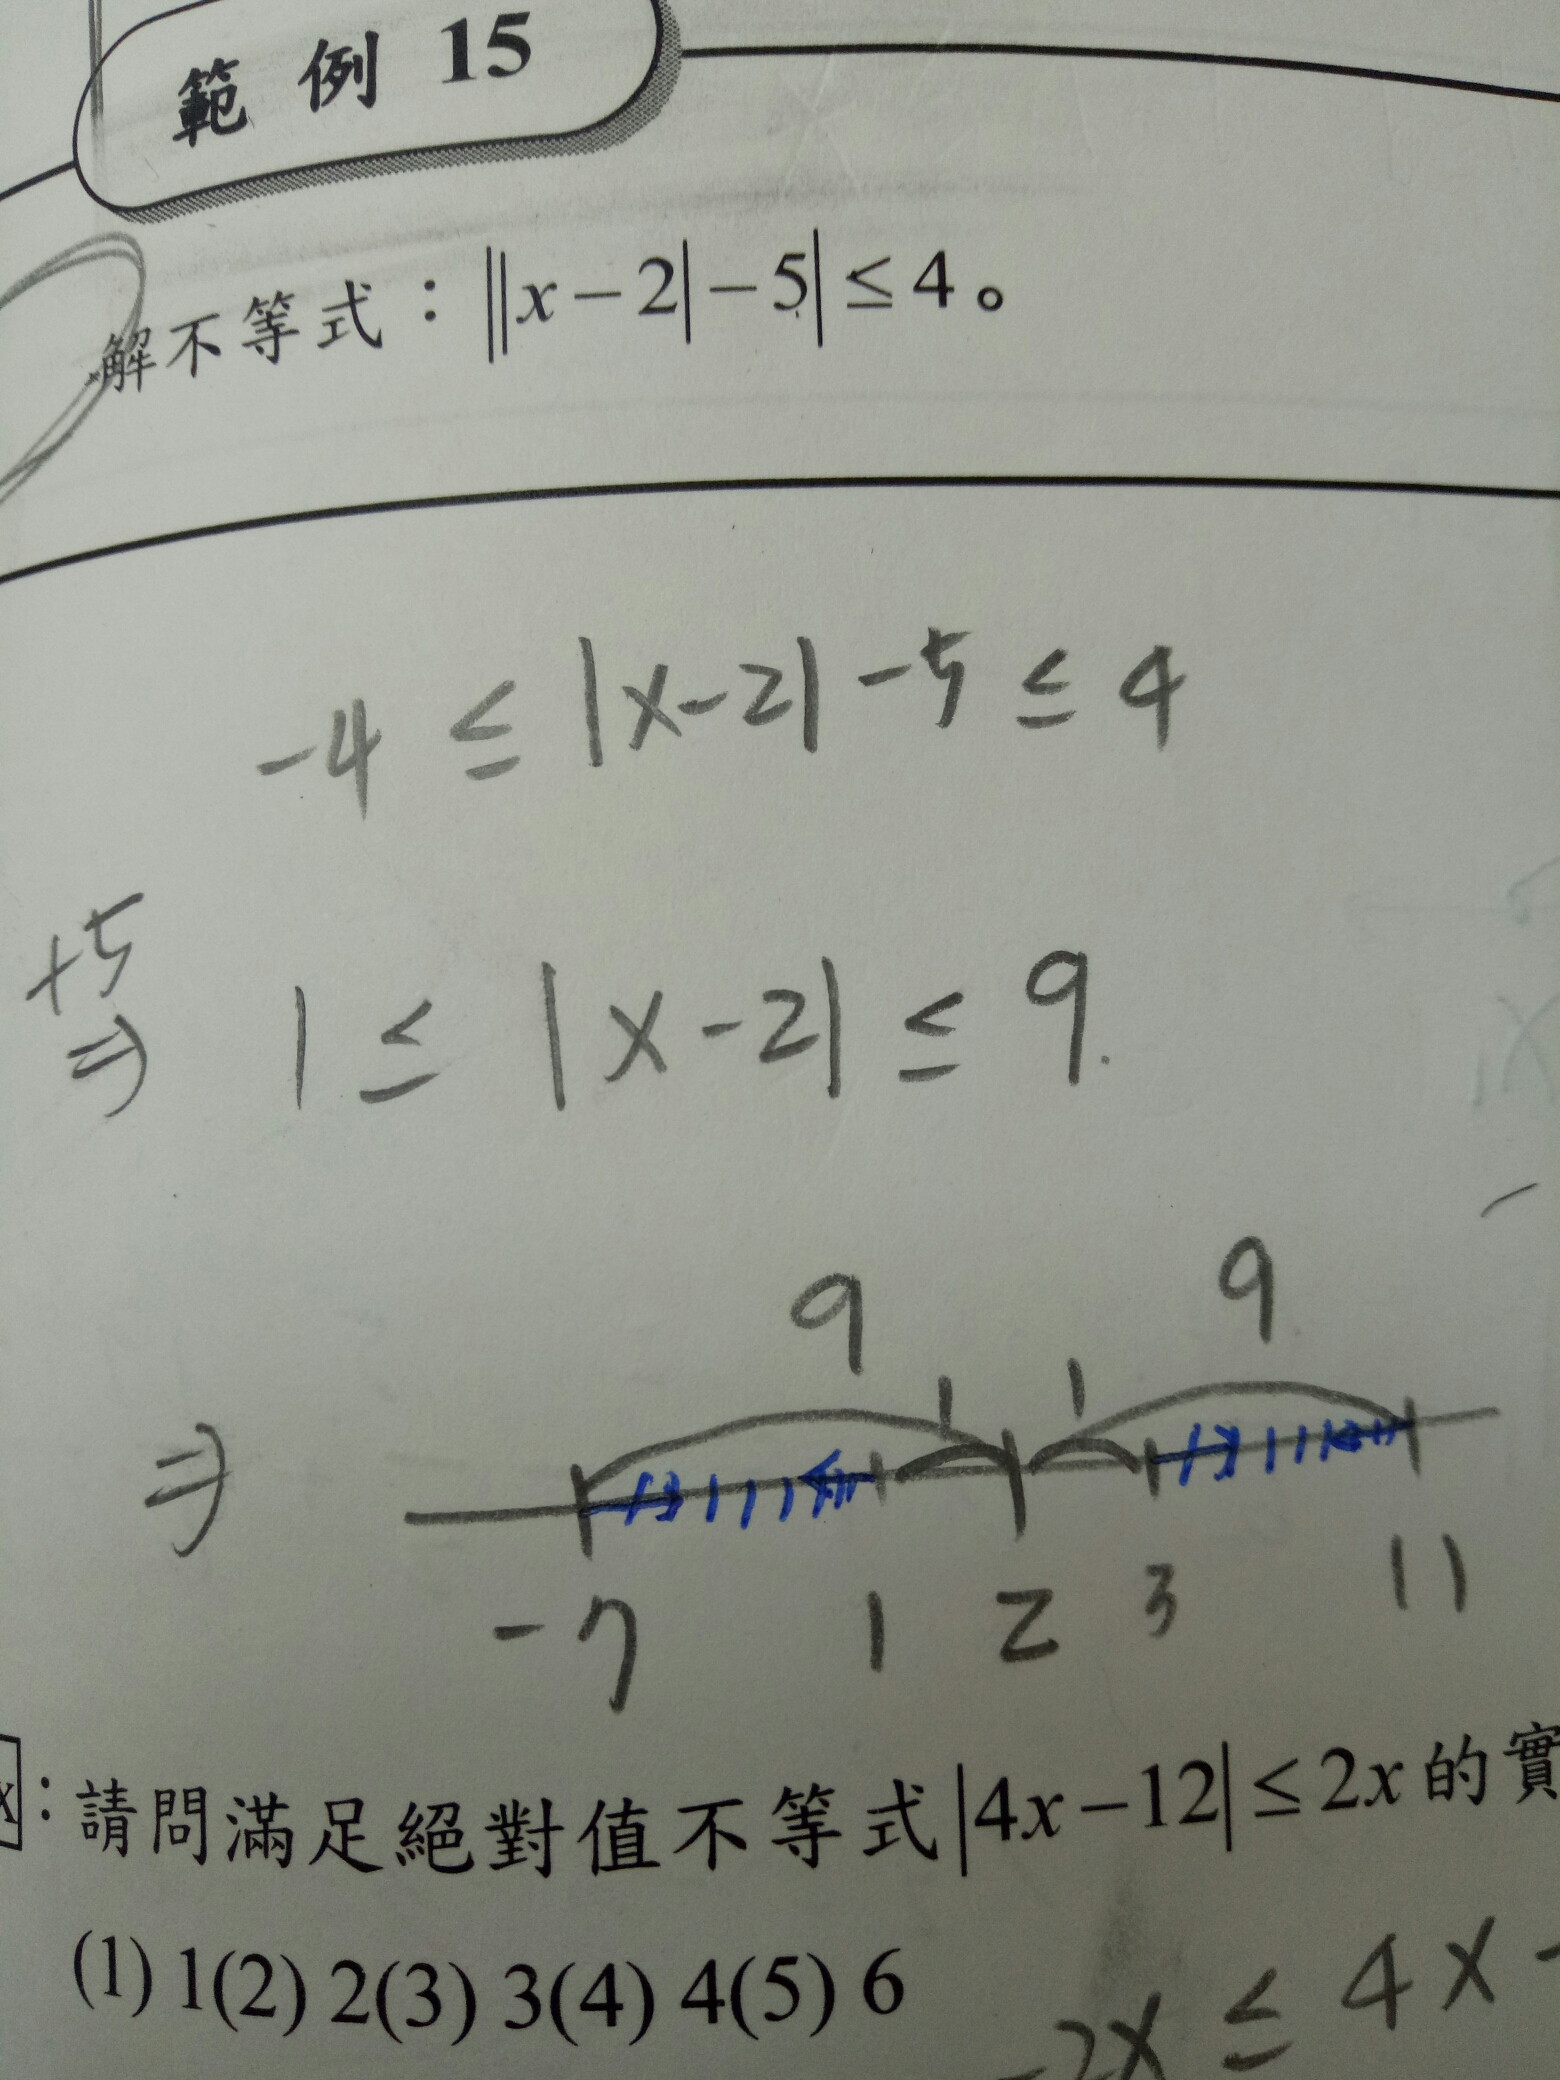 範例 15
解不等式：||x-2|-5|≤4。
-4 ≤ |x-2| -5 ≤ 4
+5
⇒ 1 ≤ |x-2| ≤ 9
9 1 1 9
⇒
-7 1 2 3 11
：請問滿足絕對值不等式|4x-12|≤2x的實
(1) 1(2) 2(3) 3(4) 4(5) 6
-2x ≤ 4x-